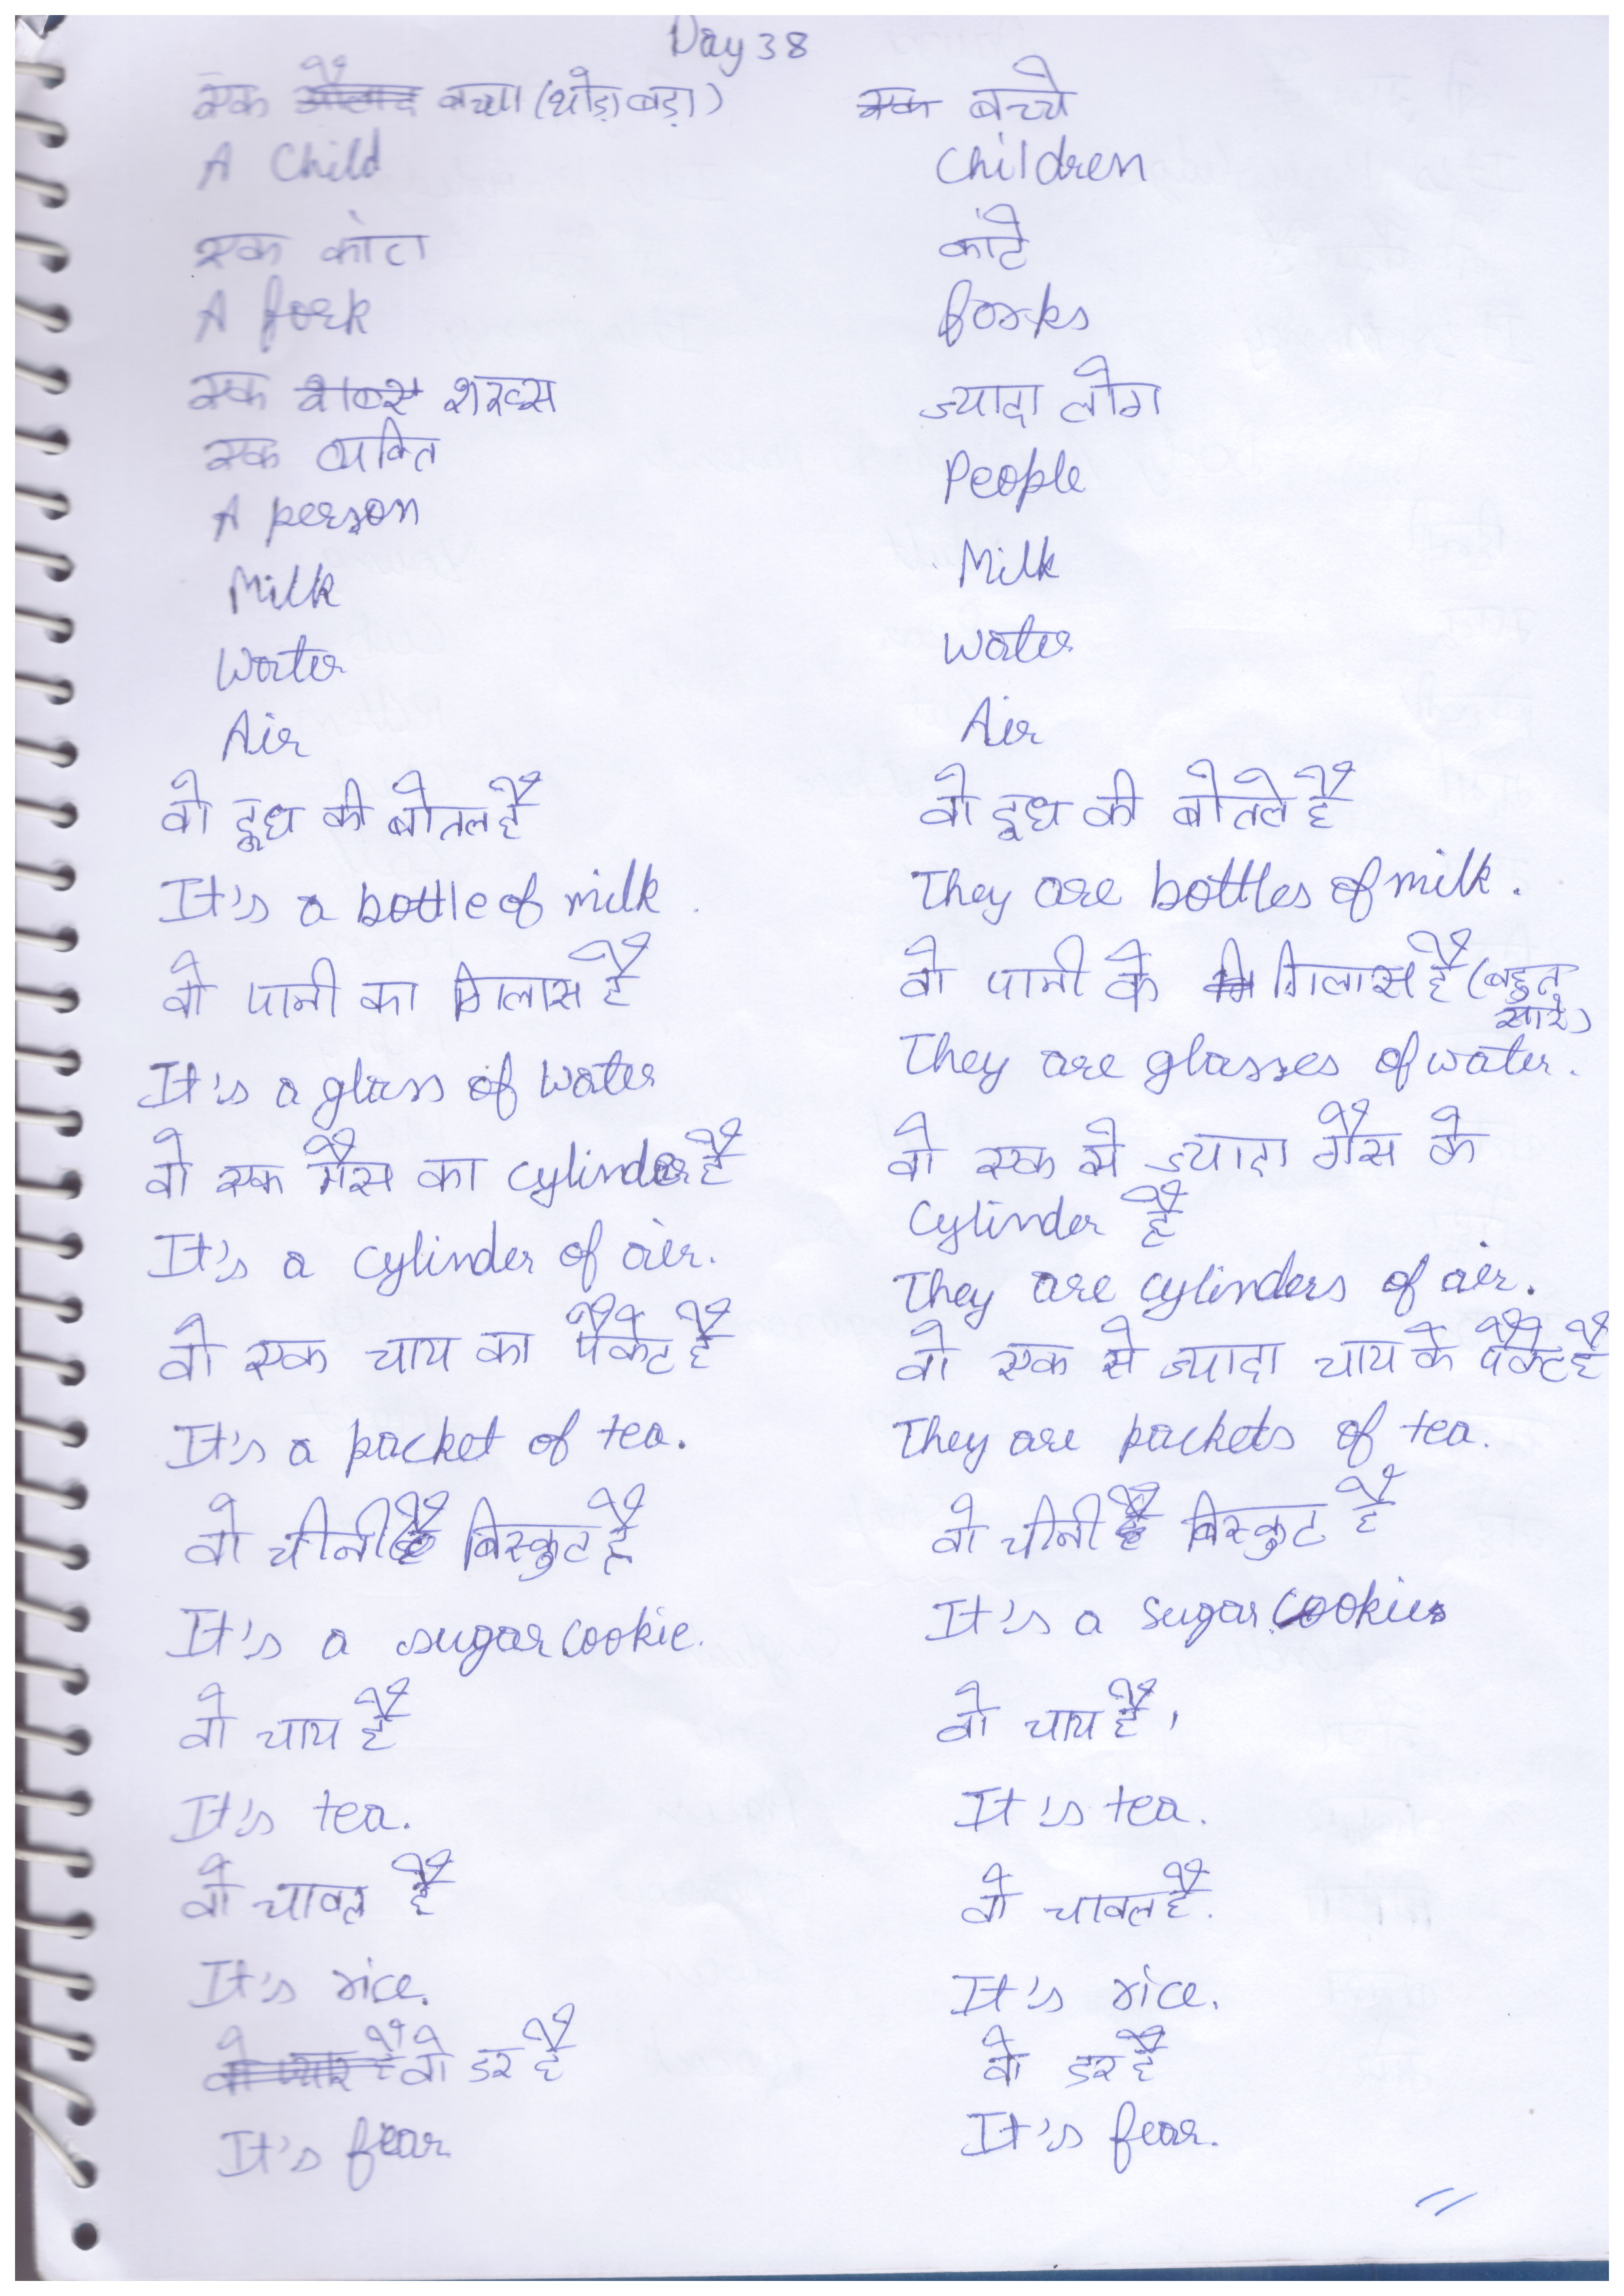 Day 38
एक बच्चा (थोड़ा बड़ा)
A Child
एक कांटा
A fork
एक शख्स
एक व्यक्ति
A person
Milk
Water
Air
वो दूध की बोतल है
It's a bottle of milk.
वो पानी का गिलास है
It's a glass of water
वो एक गैस का cylinder है
It's a cylinder of air.
वो एक चाय का पैकेट है
It's a packet of tea.
वो चीनी बिस्कुट है
It's a sugar cookie.
वो चाय है
It's tea.
वो चावल है
It's rice.
वो डर है
It's fear
एक बच्चे
Children
कांटे
forks
ज्यादा लोग
People
Milk
Water
Air
वो दूध की बोतले है
They are bottles of milk.
वो पानी के गिलास है (बहुत
सारे)
They are glasses of water.
वो एक से ज्यादा गैस के
Cylinder है
They are cylinders of air.
वो एक से ज्यादा चाय के पैकेट है
They are packets of tea.
वो चीनी बिस्कुट है
It's a sugar cookies
वो चाय है,
It's tea.
वो चावल है.
It's rice.
वो डर है
It's fear.